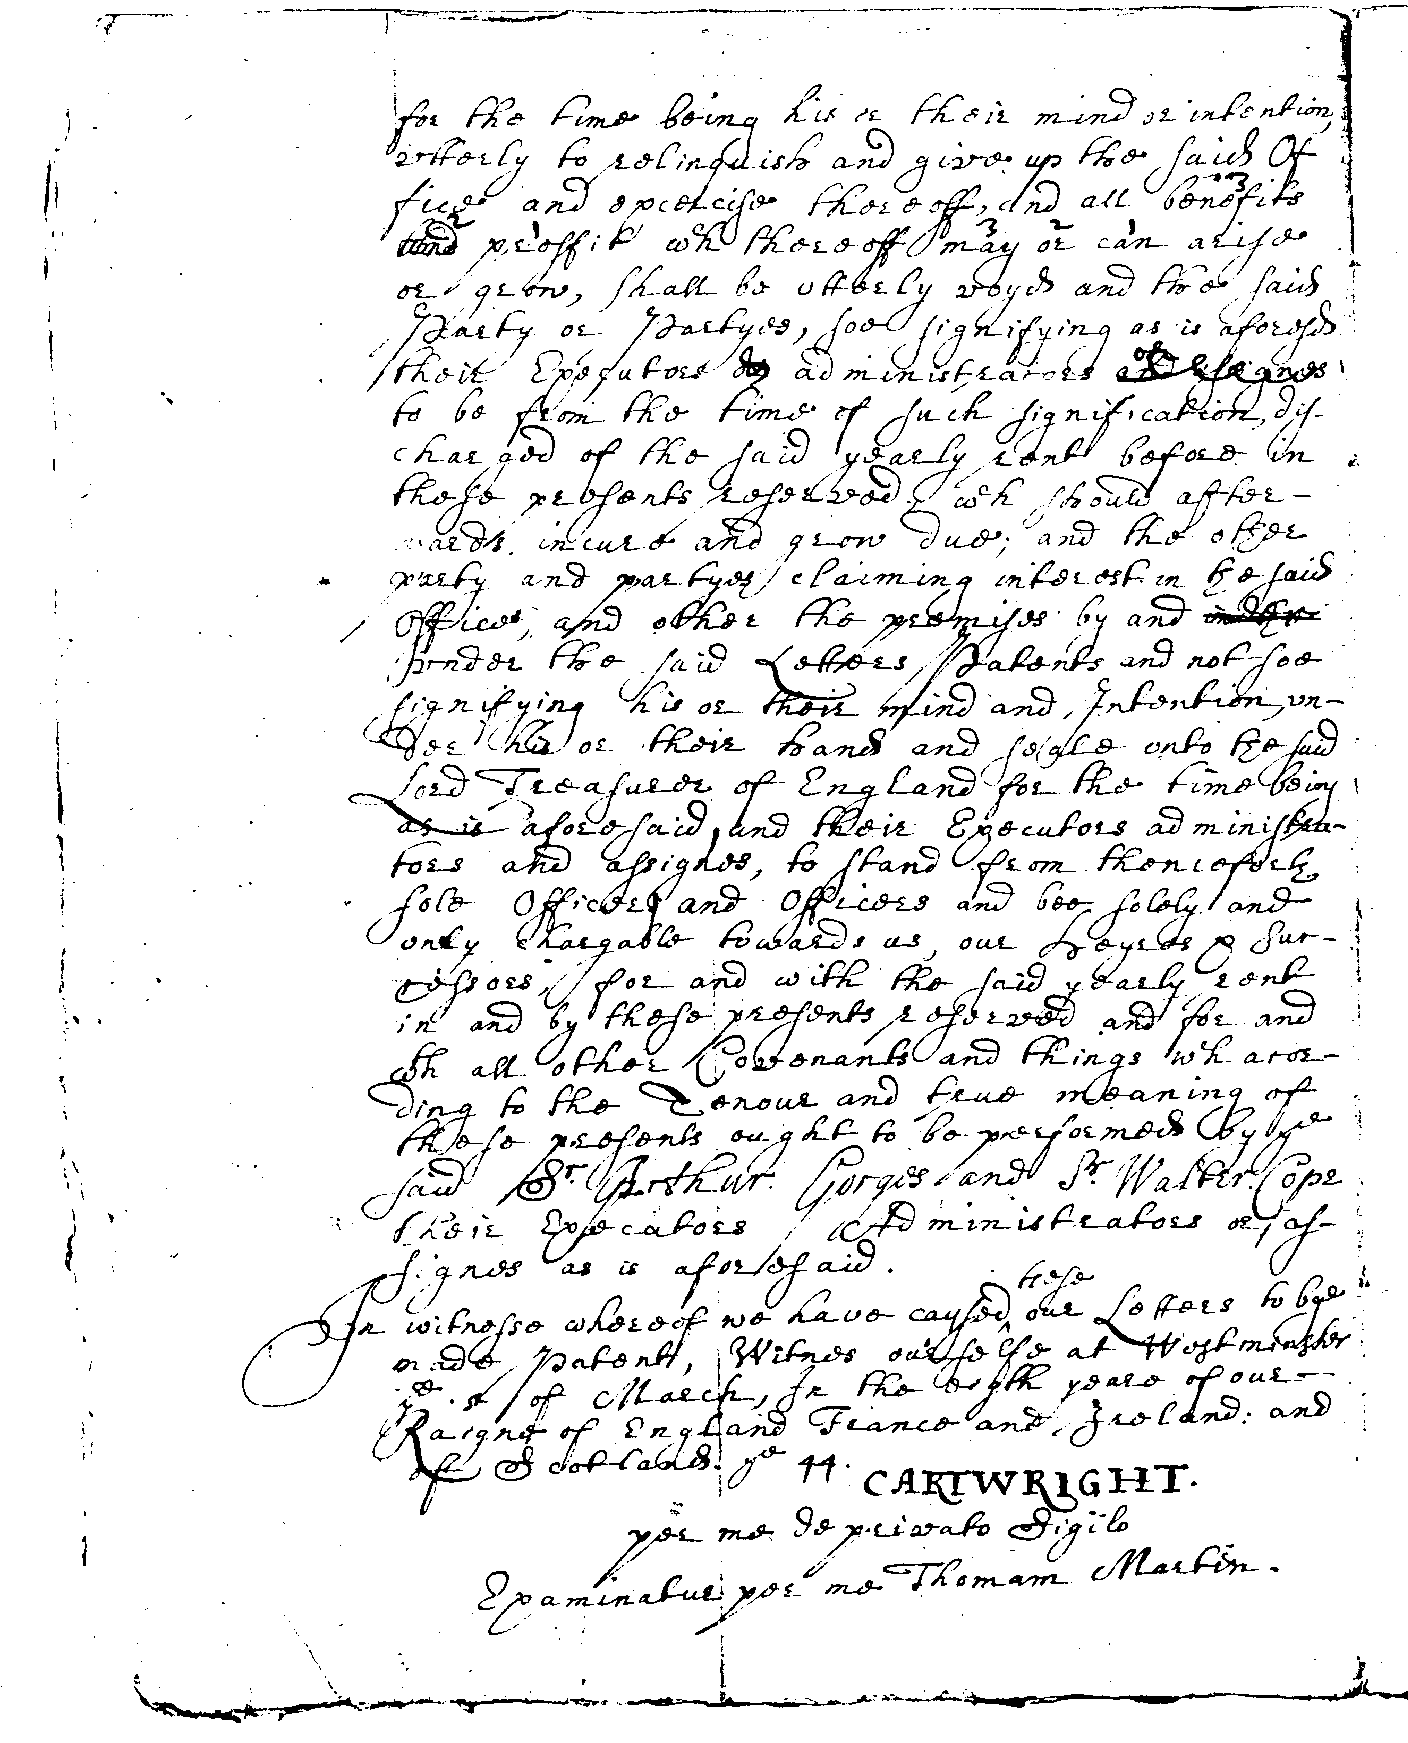 for the time being his or their mind or intention,
vtterly to relinquish and give up the said Of
fice and excercise thereoff, and all benefits
and proffit wch thereoff may or can arise
or grow, shall be vtterly voyd and the said
Party or Partyes, soe signifying as is aforesd
their Executors administrators or assignes
to be from the time of such signification, dis-
charged of the said yearly rent before in
these presents reserved, wch should after-
wards incure and grow due; and the other
party and partyes claiming interest in the said
Office, and other the premises by and
vnder the said Letters Patents and not soe
signifying his or their mind and Intention, vn-
der his or their hand and seale vnto the said
Lord Treasurer of England for the time being
as is aforesaid, and their Executors administra-
tors and assignes, to stand from thenceforth
sole Officer and Officers and bee solely and
only chargable towards us, our heyres & suc-
cessors, for and with the said yearly rent
in and by these presents reserved and for and
wth all other Covenants and things wch acor-
ding to the Tenour and true meaning of
these presents ought to be performed by ye
said Sr Arthur Gorges and Sr Walter Cope
their Execators Administrators or as-
signes as is aforesaid.
In witnesse whereof we have caysed these our Letters to bye
made Patent, Witnes ourselfe at Westminster
ye of March, In the eigth yeare of our
Raigne of England France and Ireland: and
of Scotland ye 44.
CARTWRIGHT.
per me de privato Sigilo
Examinatur per me Thomam Martin.